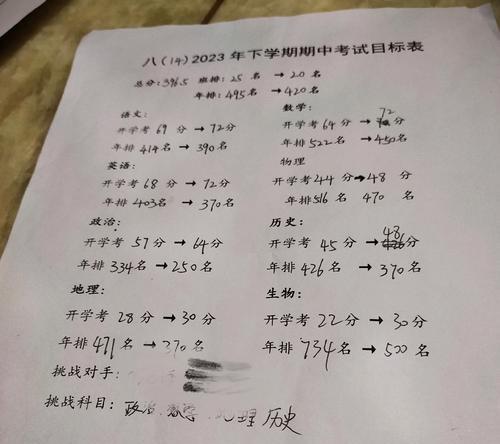 八(14)2023年下学期期中考试目标表
总分:396.5 班排:25名 → 20名
年排:495名 → 420名
语文:
开学考 69 分 → 72分
年排 414名 → 390名
数学:
开学考 64 分 → 72分
年排 522名 → 450名
英语:
开学考 68 分 → 72分
年排 403名 → 370名
物理
开学考 44 分 → 48 分
年排 516名 470 名
政治:
开学考 57分 → 64分
年排 334名 → 250名
历史:
开学考 45 分 → 48分
年排 426名 → 370名
地理:
开学考 28分 → 30分
年排 471名 → 370名
生物:
开学考 22分 → 30分
年排 734名 → 500名
挑战对手:
挑战科目: 政治 地理 历史